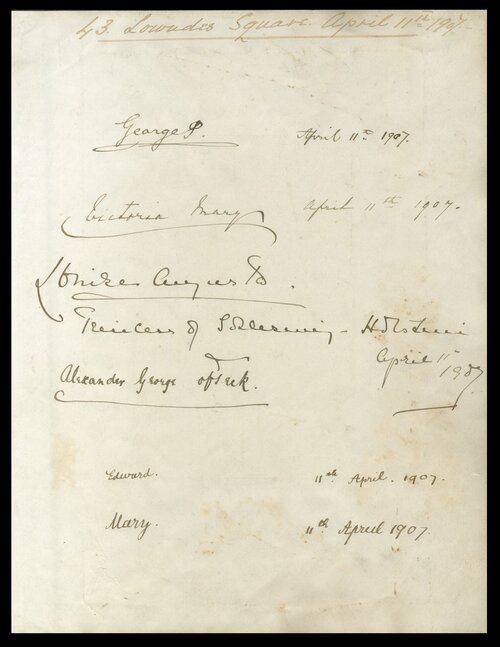 43. Lowndes Square. April 11th 1907-
George P. April 11th 1907.
Victoria Mary April 11th 1907.
Louise Augusta.
Princess of Schleswig - Holstein
April 11th
1907
Alexander George of Teck.
Edward. 11th April. 1907.
Mary. 11th April 1907.